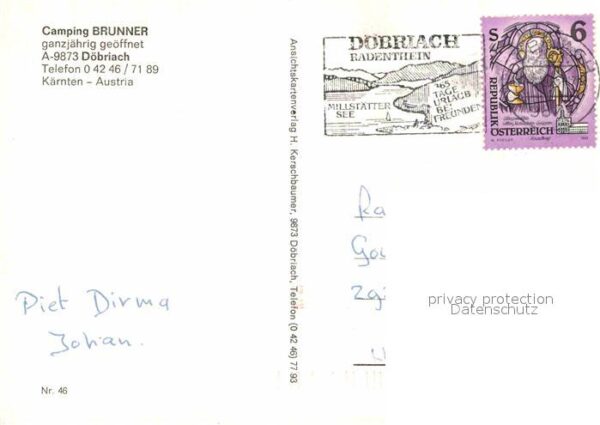 Camping BRUNNER
ganzjährig geöffnet
A-9873 Döbriach
Telefon 0 42 46 / 71 89
Kärnten – Austria
Piet Dirma
Johan.
Nr. 46
Ansichtskartenverlag H. Kerschbaumer, 9873 Döbriach, Telefon (0 42 46) 77 93
DÖBRIACH
RADENTHEIN
MILLSTÄTTER
SEE
365
TAGE
URLAUB
BEI
FREUNDEN
S 6
REPUBLIK
ÖSTERREICH
privacy protection
Datenschutz